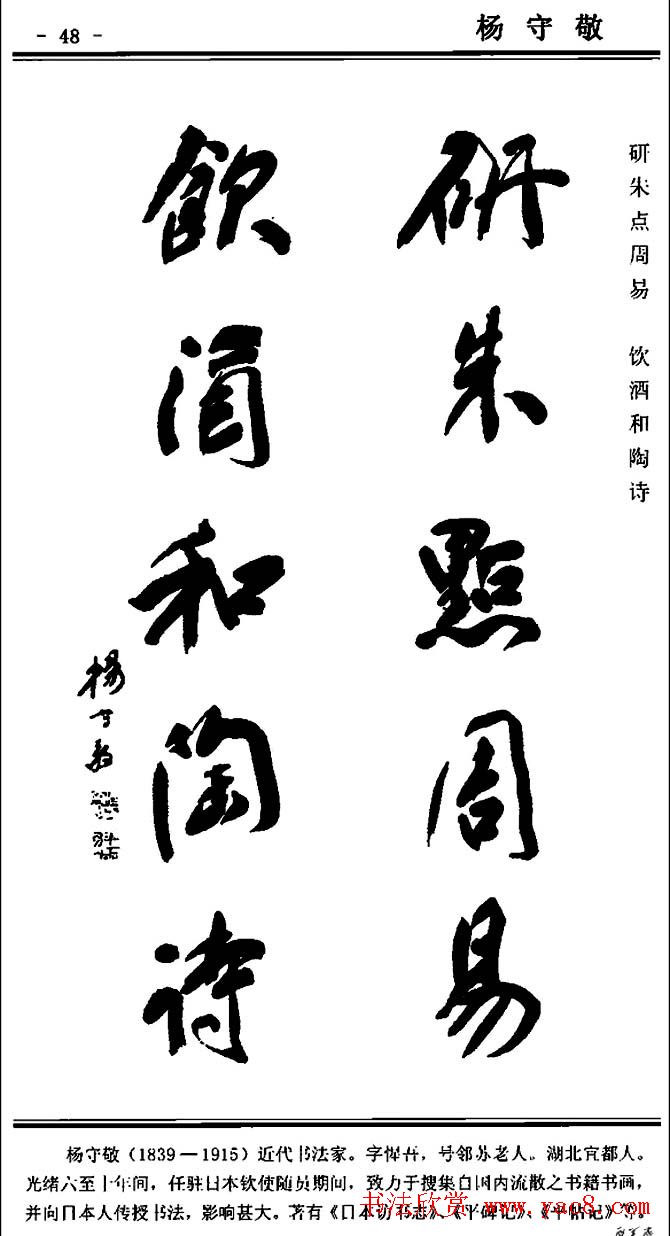 - 48 -
杨守敬
研朱点周易 饮酒和陶诗
研朱點周易
飲酒和陶詩
楊守敬
杨守敬（1839—1915）近代书法家。字惺吾，号邻苏老人。湖北宜都人。
光绪六至十年间，任驻日本钦使随员期间，致力于搜集自国内流散之书籍书画，
并向日本人传授书法，影响甚大。著有《日本访书志》、《平碑记》、《平帖记》等。
书法欣赏 www.yac8.com